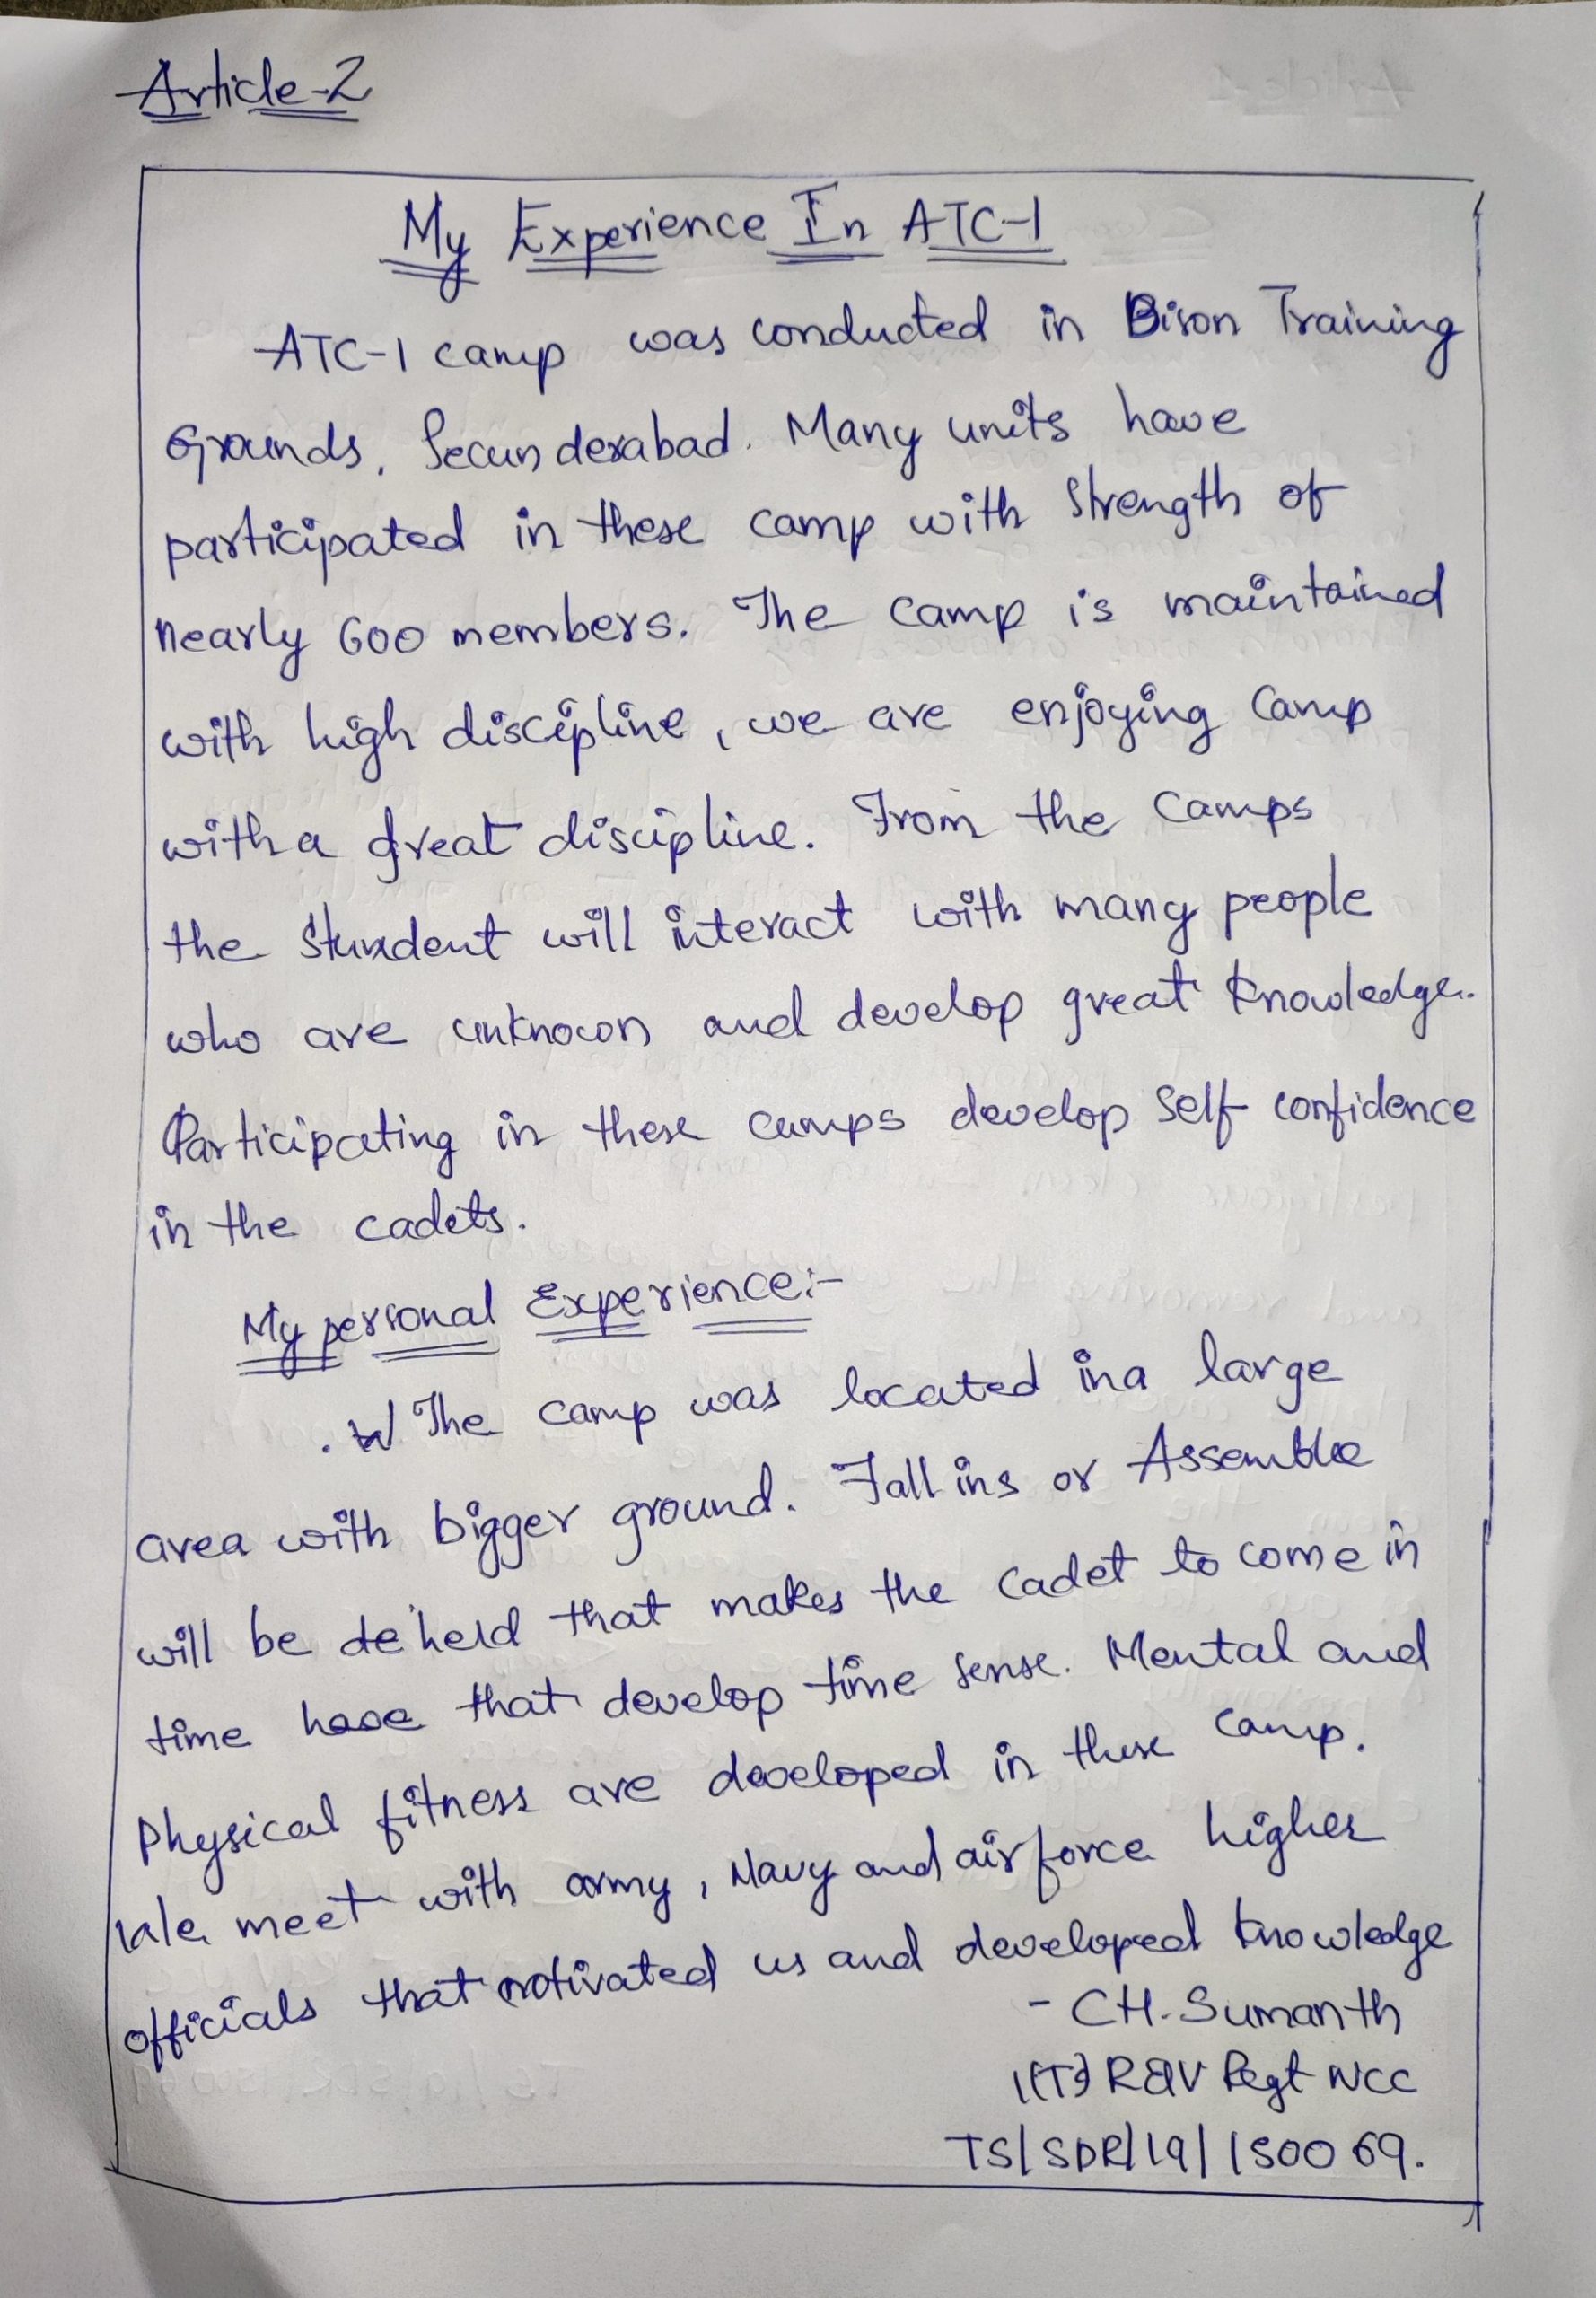 Article-2
My Experience In ATC-1
ATC-1 camp was conducted in Bison Training
Grounds, Secunderabad. Many units have
participated in these camp with strength of
nearly 600 members. The camp is maintained
with high discipline, we are enjoying camp
with a great discipline. From the camps
the student will interact with many people
who are unknown and develop great knowledge.
Participating in these camps develop self confidence
in the cadets.
My personal Experience:-
. The camp was located in a large
area with bigger ground. Fall ins or Assemble
will be held that makes the cadet to come in
time have that develop time sense. Mental and
Physical fitness are developed in these camp.
We meet with army, Navy and airforce higher
officials that motivated us and developed knowledge
- CH. Sumanth
1(T) R&V Regt NCC
TS/SDR/19/150069.